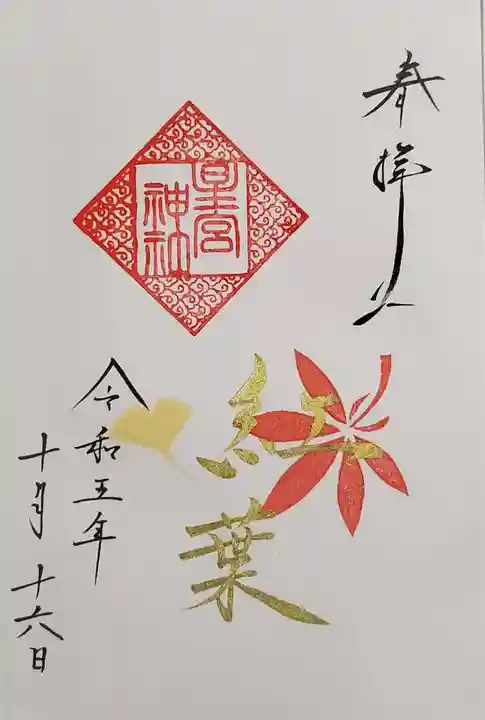 奉拝
皇宮
神社
紅葉
令和五年
十月十六日